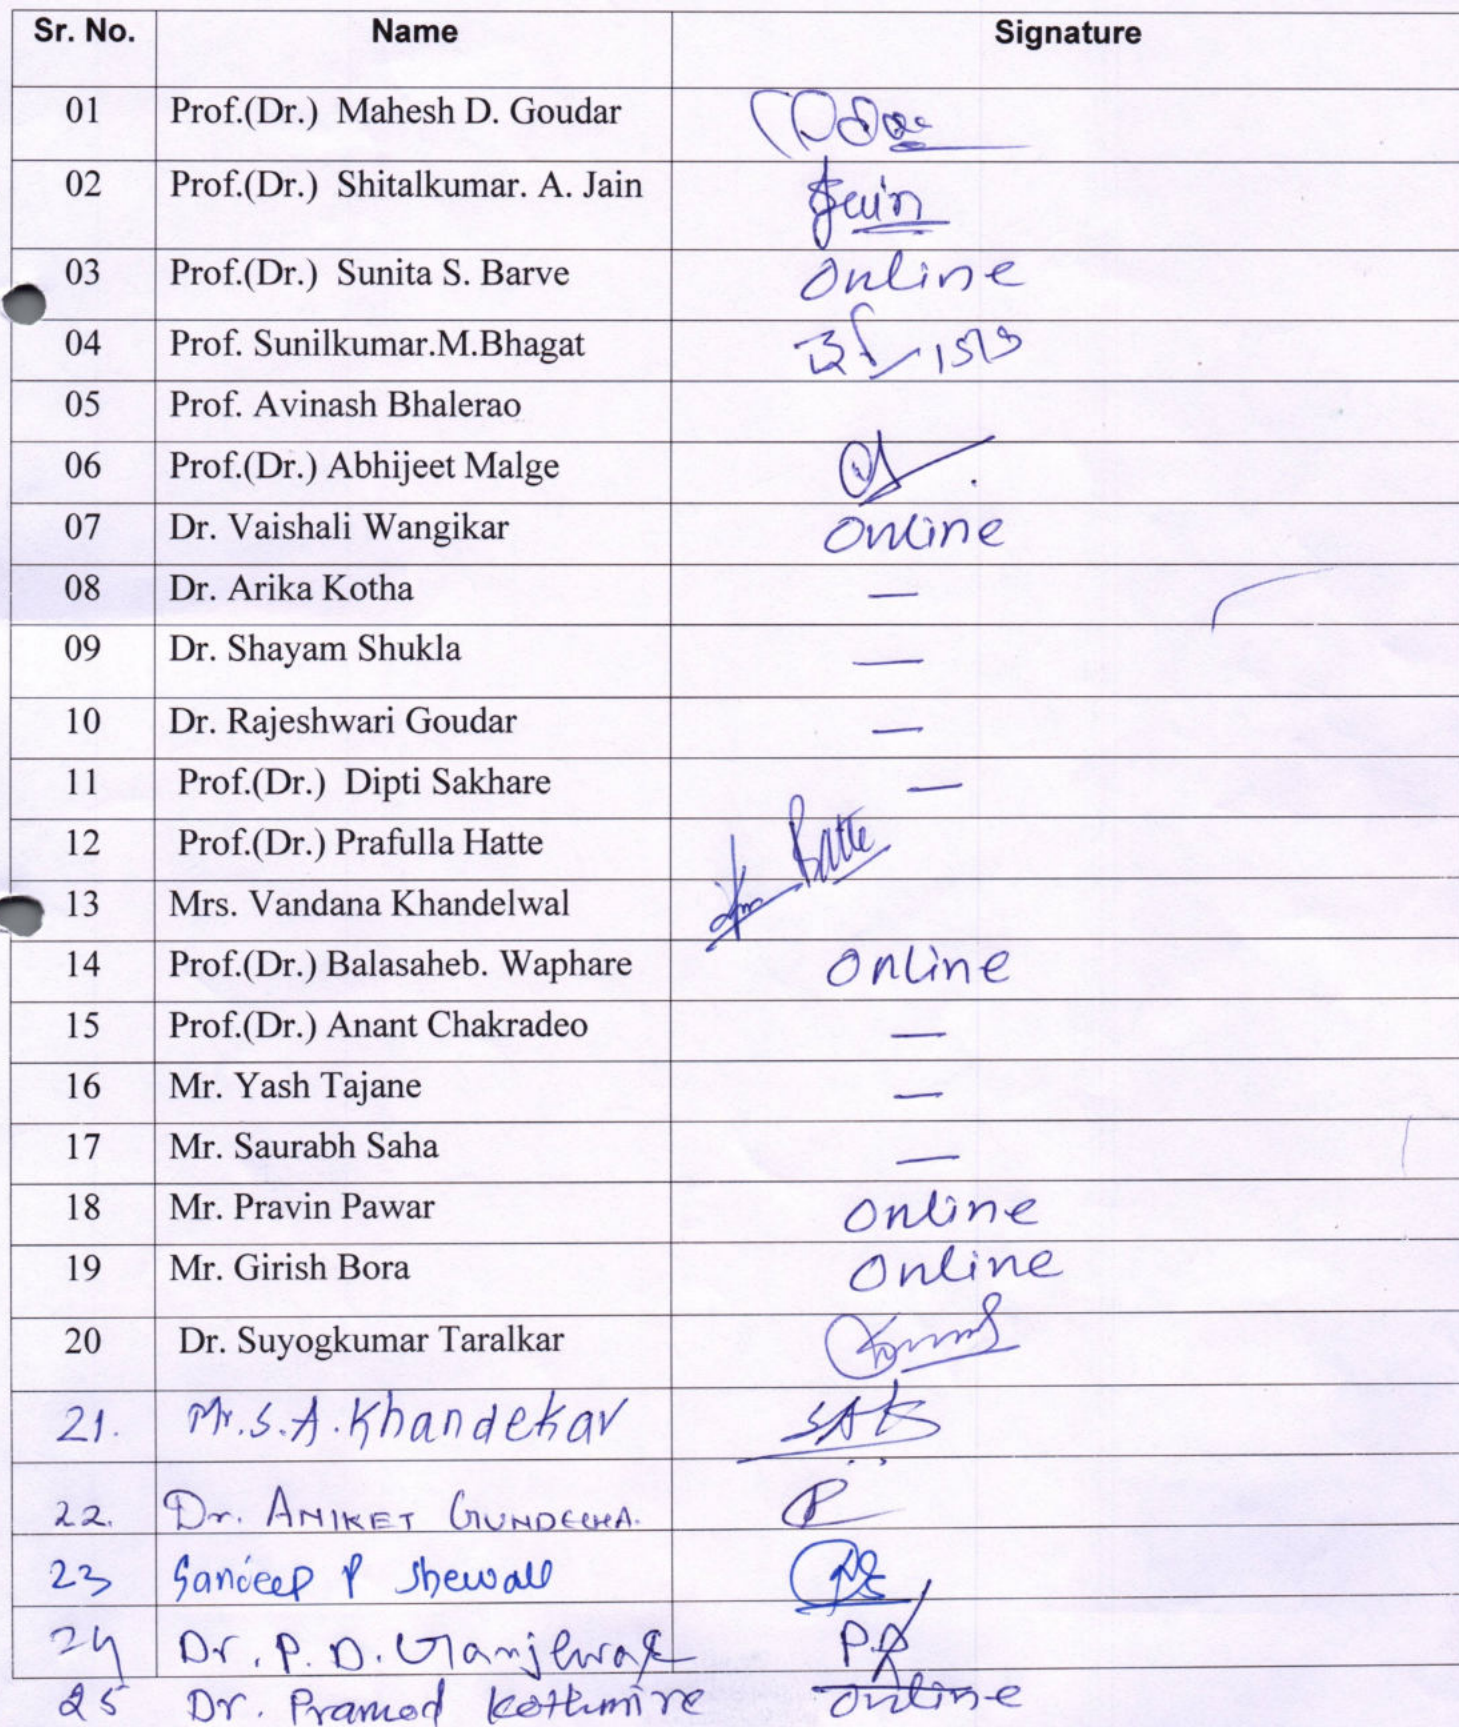 Sr. No. Name Signature
01 Prof.(Dr.) Mahesh D. Goudar
02 Prof.(Dr.) Shitalkumar. A. Jain Jain
03 Prof.(Dr.) Sunita S. Barve Online
04 Prof. Sunilkumar.M.Bhagat
05 Prof. Avinash Bhalerao
06 Prof.(Dr.) Abhijeet Malge
07 Dr. Vaishali Wangikar Online
08 Dr. Arika Kotha —
09 Dr. Shayam Shukla —
10 Dr. Rajeshwari Goudar —
11 Prof.(Dr.) Dipti Sakhare —
12 Prof.(Dr.) Prafulla Hatte
13 Mrs. Vandana Khandelwal
14 Prof.(Dr.) Balasaheb. Waphare Online
15 Prof.(Dr.) Anant Chakradeo —
16 Mr. Yash Tajane —
17 Mr. Saurabh Saha —
18 Mr. Pravin Pawar Online
19 Mr. Girish Bora Online
20 Dr. Suyogkumar Taralkar
21. Mr.S.A.Khandekar SAK
22. Dr. ANIKET GUNDECHA.
23 Sandeep P Shewale
24 Dr. P. D. Ganjewar
25 Dr. Pramod Kothmire Online